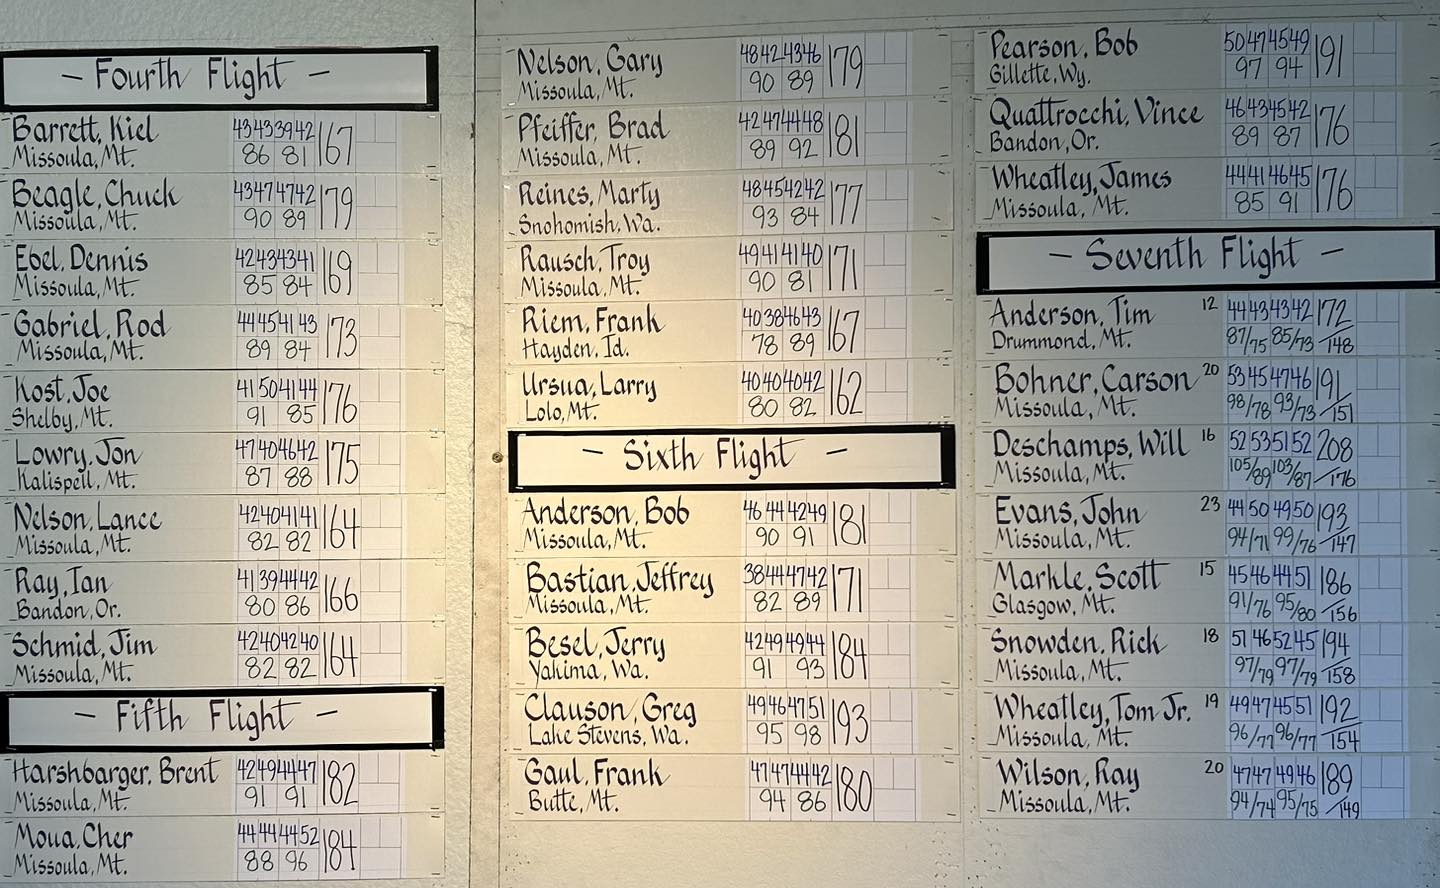 - Fourth Flight -
Barrett, Kiel 43 43 39 42 167
Missoula, Mt. 86 81
Beagle, Chuck 43 47 47 42 179
Missoula, Mt. 90 89
Ebel, Dennis 42 43 43 41 169
Missoula, Mt. 85 84
Gabriel, Rod 44 45 41 43 173
Missoula, Mt. 89 84
Kost, Joe 41 50 41 44 176
Shelby, Mt. 91 85
Lowry, Jon 47 40 46 42 175
Kalispell, Mt. 87 88
Nelson, Lance 42 40 41 41 164
Missoula, Mt. 82 82
Ray, Ian 41 39 44 42 166
Bandon, Or. 80 86
Schmid, Jim 42 40 42 40 164
Missoula, Mt. 82 82
- Fifth Flight -
Harshbarger, Brent 42 49 44 47 182
Missoula, Mt. 91 91
Moua, Cher 44 44 44 52 184
Missoula, Mt. 88 96
Nelson, Gary 48 42 43 46 179
Missoula, Mt. 90 89
Pfeiffer, Brad 42 47 44 48 181
Missoula, Mt. 89 92
Reines, Marty 48 45 42 42 177
Snohomish, Wa. 93 84
Rausch, Troy 49 41 41 40 171
Missoula, Mt. 90 81
Riem, Frank 40 38 46 43 167
Hayden, Id. 78 89
Ursua, Larry 40 40 40 42 162
Lolo, Mt. 80 82
- Sixth Flight -
Anderson, Bob 46 44 42 49 181
Missoula, Mt. 90 91
Bastian, Jeffrey 38 44 47 42 171
Missoula, Mt. 82 89
Besel, Jerry 42 49 49 44 184
Yakima, Wa. 91 93
Clauson, Greg 49 46 47 51 193
Lake Stevens, Wa. 95 98
Gaul, Frank 47 47 44 42 180
Butte, Mt. 94 86
Pearson, Bob 50 47 45 49 191
Gillette, Wy. 97 94
Quattrocchi, Vince 46 43 45 42 176
Bandon, Or. 89 87
Wheatley, James 44 41 46 45 176
Missoula, Mt. 85 91
- Seventh Flight -
Anderson, Tim 12 44 43 43 42 172
Drummond, Mt. 87/75 85/73 /148
Bohner, Carson 20 53 45 47 46 191
Missoula, Mt. 98/78 93/73 /151
Deschamps, Will 16 52 53 51 52 208
Missoula, Mt. 105/89 103/87 /176
Evans, John 23 44 50 49 50 193
Missoula, Mt. 94/71 99/76 /147
Markle, Scott 15 45 46 44 51 186
Glasgow, Mt. 91/76 95/80 /156
Snowden, Rick 18 51 46 52 45 194
Missoula, Mt. 97/79 97/79 /158
Wheatley, Tom Jr. 19 49 47 45 51 192
Missoula, Mt. 96/77 96/77 /154
Wilson, Ray 20 47 47 49 46 189
Missoula, Mt. 94/74 95/75 /149